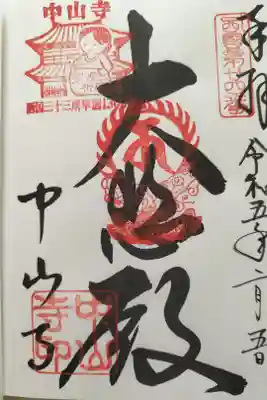 奉拝
西国第廿四番
令和五年二月五日
大悲殿
中山寺
西国三十三所草創13
中山寺
中山寺印